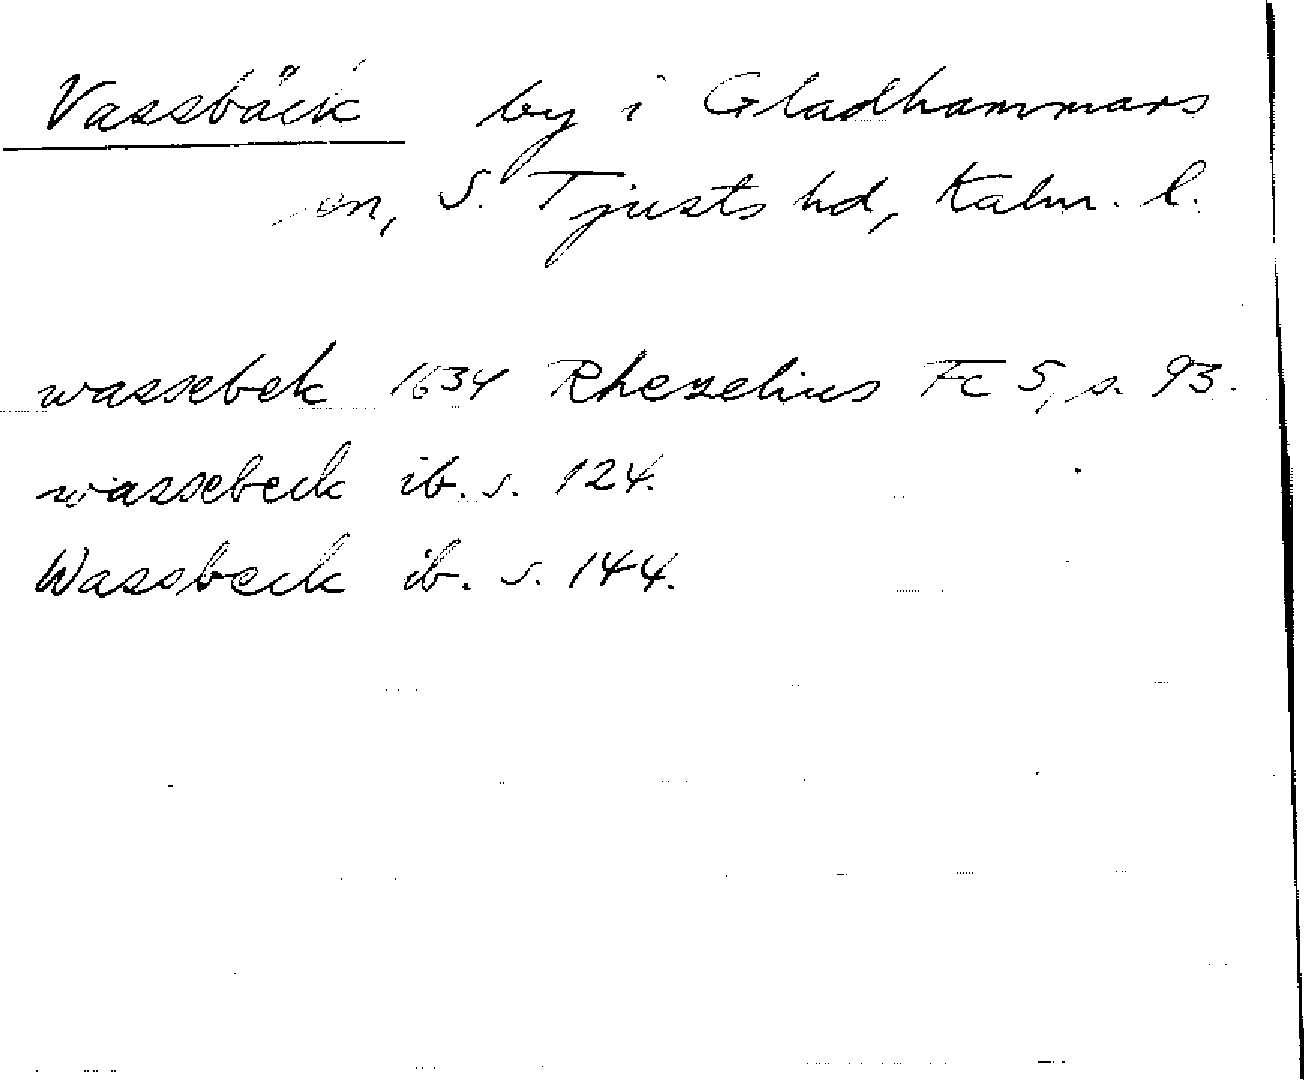 Vassbäck by i Gladhammars
sn, S. Tjusts hd, Kalm. l.
wassebek 1634 Rhezelius Fc 5, s. 93.
wassebeck ib. s. 124.
Wassbeck ib. s. 144.